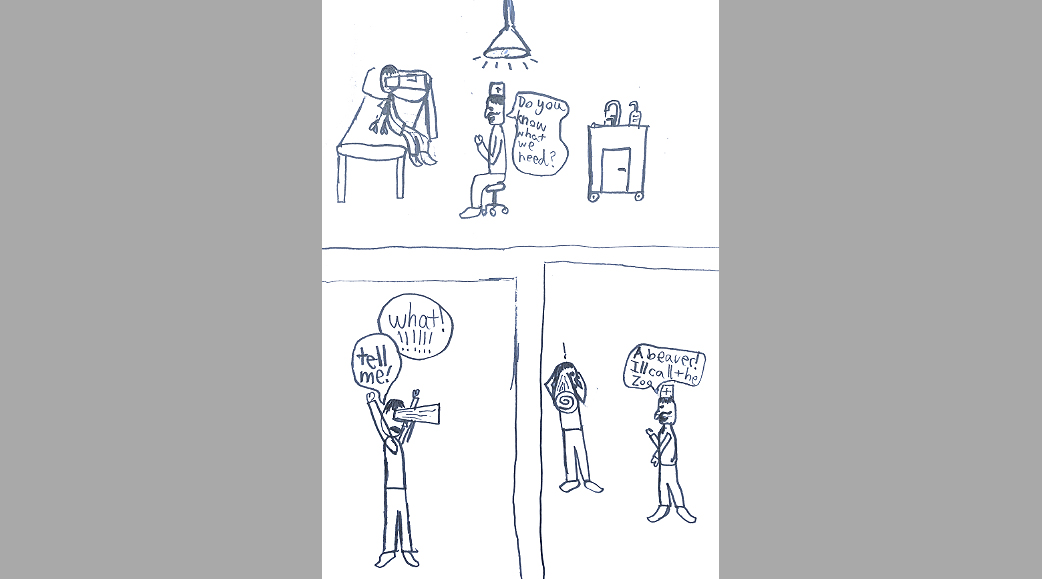 Do you
know
what
we
need?
what!
!!!!!!
tell
me!
!
A beaver!
Ill call the
Zoo